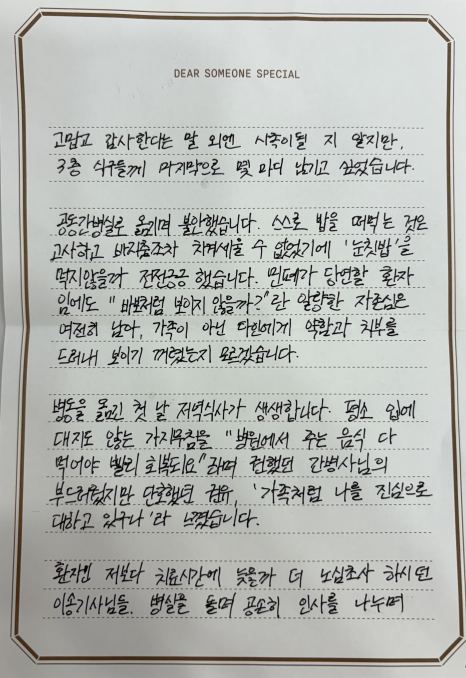 DEAR SOMEONE SPECIAL
고맙고 감사한다는 말 외엔 사족이될 지 알지만,
3층 식구들께 마지막으로 몇 마디 남기고 싶었습니다.
공동간병실로 옮기며 불안했습니다. 스스로 밥을 떠먹는 것은
고사하고 바지춤조차 치켜세울 수 없었기에 '눈칫밥'을
먹지않을까 전전긍긍 했습니다. 민폐가 당연할 환자
임에도 "바보처럼 보이지 않을까?"란 알량한 자존심은
여전히 남아, 가족이 아닌 타인에게 약함과 치부를
드러내 보이기 꺼렸는지 모르겠습니다.
병동을 옮긴 첫 날 저녁식사가 생생합니다. 평소 입에
대지도 않는 가지무침을 "병원에서 주는 음식 다
먹어야 빨리 회복되요"라며 전했던 간병사님의
부드러웠지만 단호했던 권유, '가족처럼 나를 진심으로
대하고 있구나'라 느꼈습니다.
환자인 저보다 치료시간에 늦을까 더 노심초사 하시던
이송기사님들. 병실을 돌며 공손히 인사를 나누며